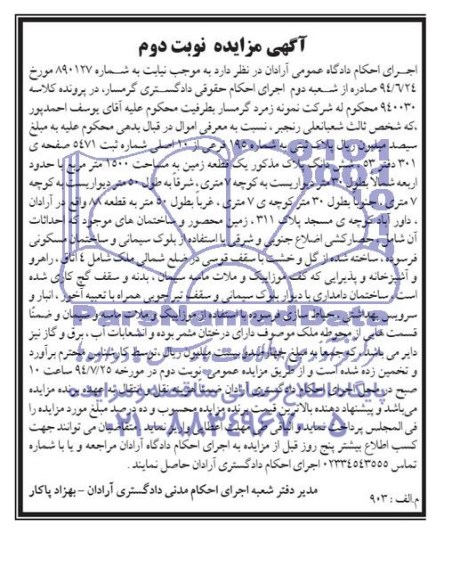 آگهی مزایده نوبت دوم
اجرای احکام دادگاه عمومی آرادان در نظر دارد به موجب نیابت به شماره ۸۹۰۱۲۷ مورخ
۹۴/۶/۲۴ صادره از شعبه دوم اجرای احکام حقوقی دادگستری گرمسار، در پرونده کلاسه
۹۴۰۰۳۰ محکوم له شرکت نمونه زمرد گرمسار بطرفیت محکوم علیه آقای یوسف احمدپور
،که شخص ثالث شعبانعلی رنجبر ، نسبت به معرفی اموال در قبال بدهی محکوم علیه به مبلغ
سیصد میلیون ریال پلاک ثبتی به شماره ۱۹۵ فرعی از ۱۰ اصلی شماره ثبت ۵۴۷۱ صفحه ی
۳۰۱ دفتر ۵۳ ثبتی مالکیت مذکور یک قطعه زمین به مساحت ۱۵۰۰ متر مربع با حدود
اربعه شمالاً بطول ۳۰ متر دیواریست به کوچه ۷ متری ، شرقاً به طول ۵۰ متر دیواریست به کوچه
۷ متری ، جنوباً بطول ۳۰ متر کوچه ی ۷ متری ، غرباً بطول ۵۰ متر به قطعه ۸۸ واقع در آرادان
، داور آباد کوچه ی مسجد پلاک ۳۱۱ ، زمین محصور و ساختمان های موجود که احداثات
آن شامل حصارکشی اضلاع جنوبی و شرقی با استفاده از بلوک سیمانی و ساختمان مسکونی
فرسوده ، ساخته شده از گل و خشت با سقف قوسی در ضلع شمالی ملک شامل ۴ اتاق ، راهرو
و آشپزخانه و پذیرایی که کف موزاییک و ملات ماسه سیمان ، بدنه و سقف گچ کاری شده
است، ساختمان دامداری با دیوار بلوک سیمانی و سقف تیرچوبی همراه با تعبیه آخور ، انبار و
سرویس بهداشتی و حیاط سازی فرسوده با استفاده از موزاییک و ملات ماسه و سیمان و ضمناً
قسمت هایی از محوطه ملک موصوف دارای درختان مثمر بوده و انشعابات آب ، برق و گاز نیز
دایر می باشد، که جمعا به مبلغ چهارصدو بیست میلیون ریال ،توسط کارشناس محترم برآورد
و تخمین زده شده است و از طریق مزایده عمومی نوبت دوم در مورخه ۹۴/۷/۲۵ ساعت ۱۰
صبح در محل اجرای احکام دادگستری آرادان ضمناً هزینه نقل و انتقال به عهده برنده مزایده
می‌باشد و پیشنهاد دهنده بالاترین قیمت برنده مزایده محسوب و ده درصد مبلغ مورد مزایده را
فی المجلس پرداخت نماید و الباقی در مهلت اعطایی واریز نماید. متقاضیان می توانند جهت
کسب اطلاع بیشتر پنج روز قبل از مزایده به اجرای احکام دادگاه آرادان مراجعه و یا با شماره
تماس ۰۲۳۳۴۵۴۳۵۵۵ اجرای احکام دادگستری آرادان حاصل نمایند .
مدیر دفتر شعبه اجرای احکام مدنی دادگستری آرادان - بهزاد پاکار
م.الف : ۹۰۳
ParsNamadData
پایگاه اطلاع رسانی مناقصه و مزایده
۰۲۱-۸۸۳۴۹۶۷۰-۵